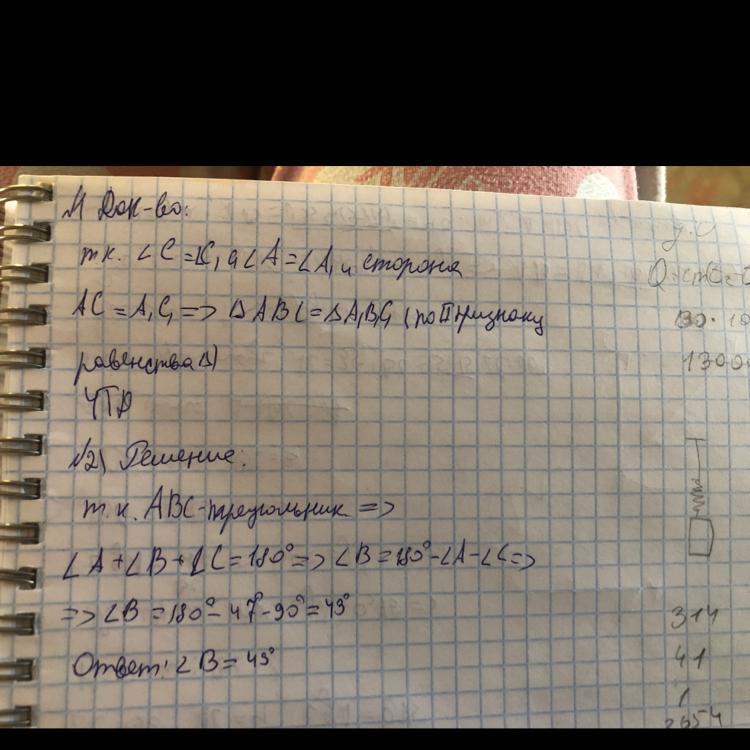 №1 Док-во:
т.к. ∠C=∠C₁ а ∠A=∠A₁ и сторона
AC=A₁C₁ => ΔABC=ΔA₁B₁C₁ (по II признаку
равенства Δ)
ЧТД
№2) Решение:
т.к. ABC-треугольник =>
∠A+∠B+∠C=180°=>∠B=180°-∠A-∠C=>
=>∠B=180°-47°-90°=43°
Ответ: ∠B=43°
1300
314
41
1
2654